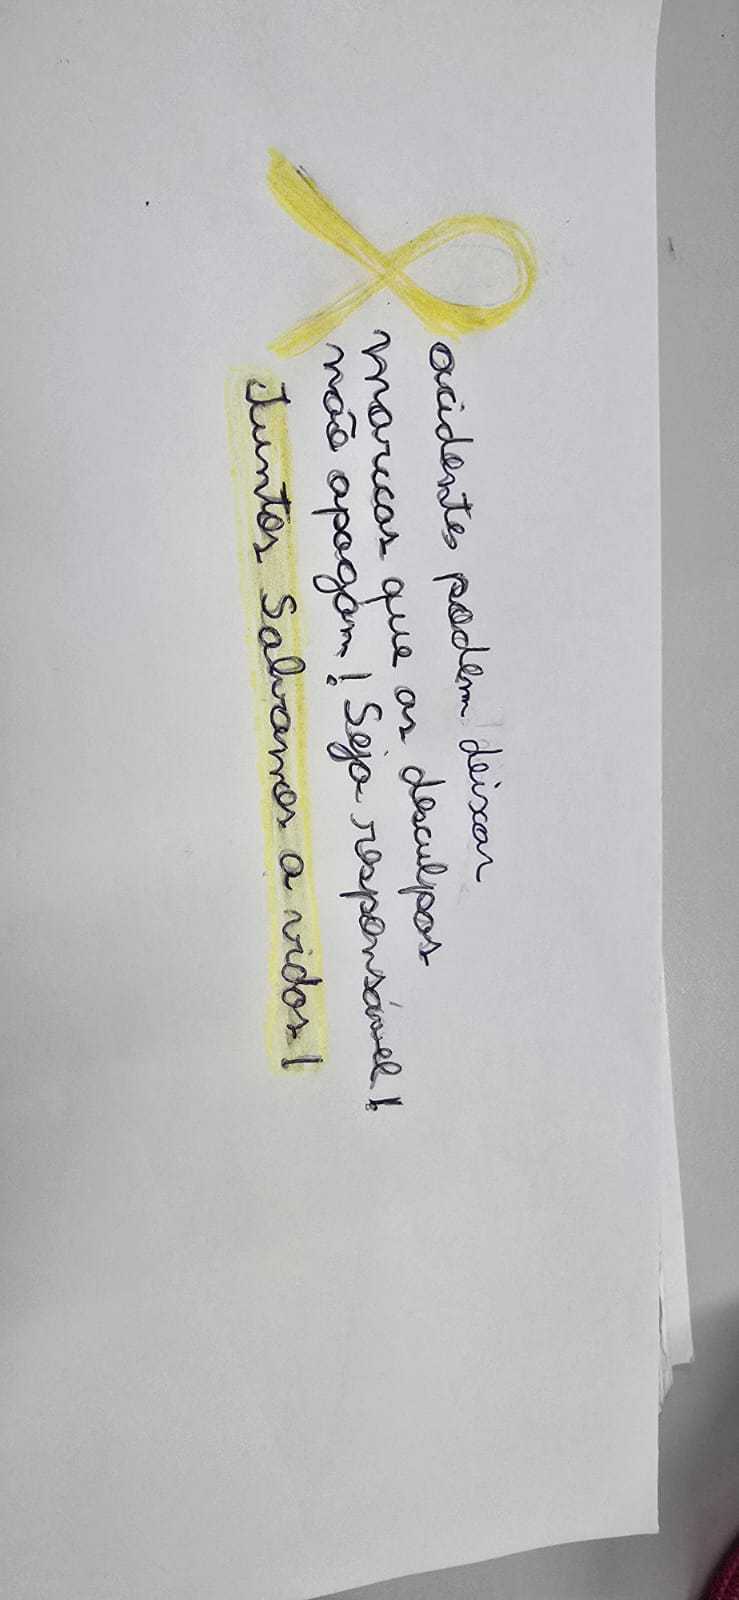 acidentes podem deixar
marcas que as desculpas
não apagam! Seja responsável!
Juntos Salvamos a vidas!